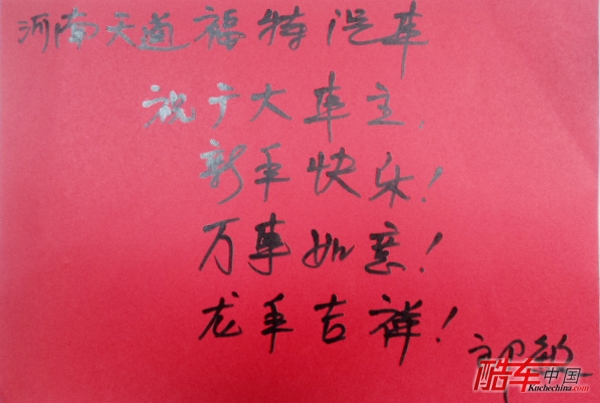 河南天道福特汽车
祝广大车主.
新年快乐!
万事如意!
龙年吉祥!
酷车中国
Kuchechina.com